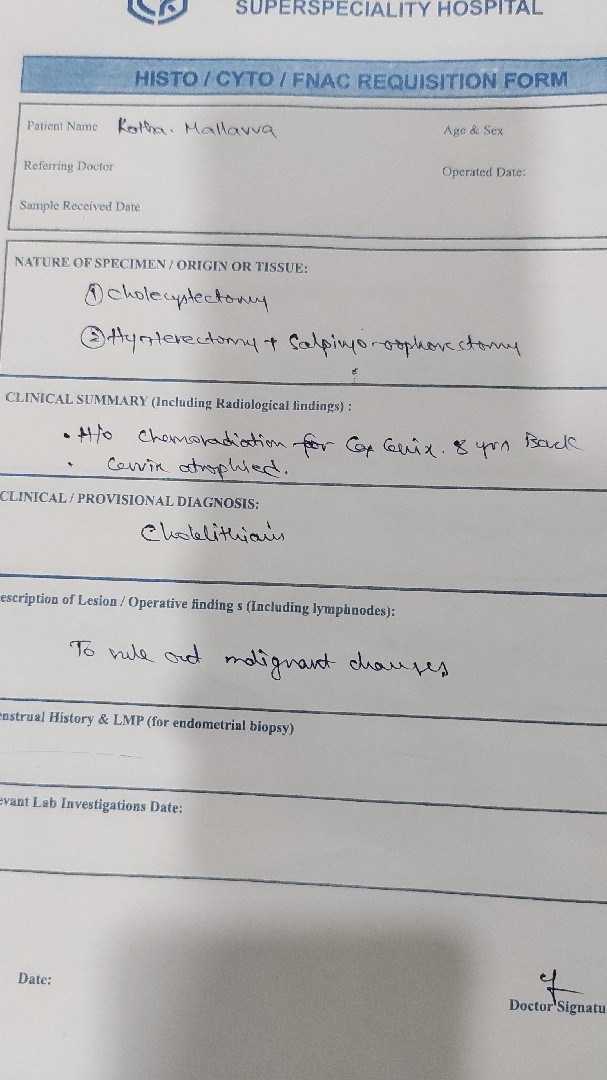 SUPERSPECIALITY HOSPITAL
HISTO / CYTO / FNAC REQUISITION FORM
Patient Name Kotha. Mallavva Age & Sex
Referring Doctor Operated Date:
Sample Received Date
NATURE OF SPECIMEN / ORIGIN OR TISSUE:
① Cholecystectomy
② Hysterectomy + Salpingo-oophorectomy
CLINICAL SUMMARY (Including Radiological findings) :
• H/o Chemoradiation for Ca Cervix. 8 yrs Back
• Cervix atrophied.
CLINICAL / PROVISIONAL DIAGNOSIS:
Cholelithiasis
escription of Lesion / Operative finding s (Including lymphnodes):
To rule out malignant changes
enstrual History & LMP (for endometrial biopsy)
evant Lab Investigations Date:
Date:
Doctor Signatu